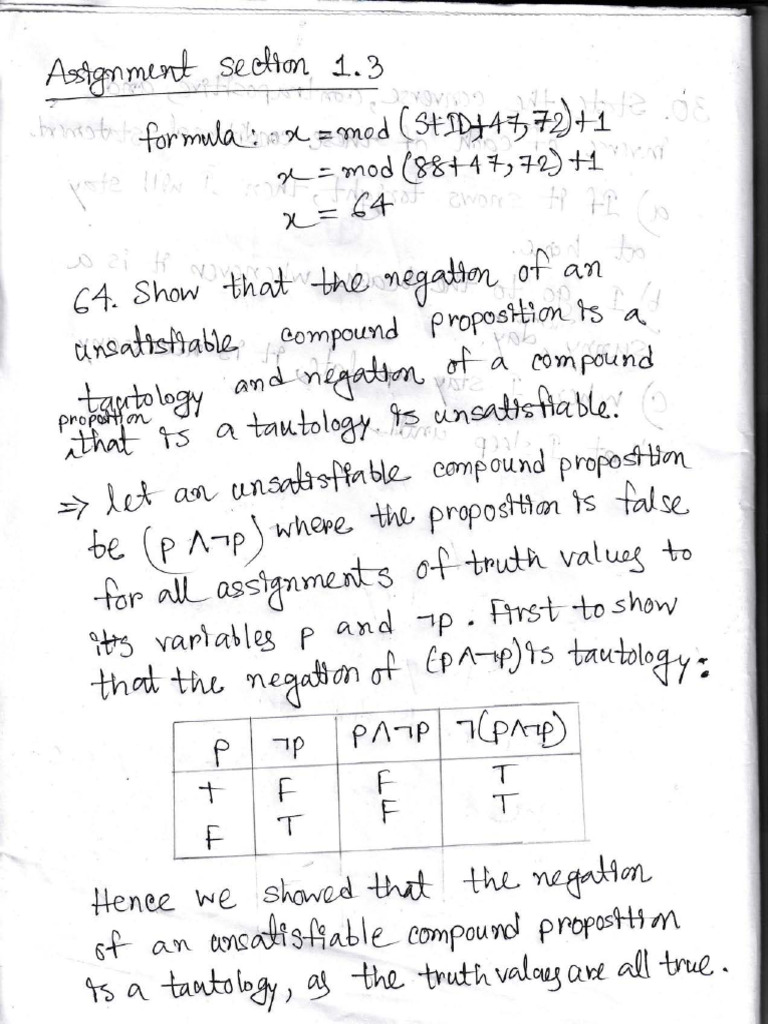 Assignment section 1.3
formula: x = mod (StID+47,72)+1
x = mod (88+47,72)+1
x = 64
64. Show that the negation of an
unsatisfiable compound proposition is a
tautology and negation of a compound
proposition
that is a tautology is unsatisfiable.
⇒ let an unsatisfiable compound proposition
be (p ∧¬p) where the proposition is false
for all assignments of truth values to
its variables p and ¬p. First to show
that the negation of (p∧¬p) is tautology:
p ¬p p∧¬p ¬(p∧¬p)
T F F T
F T F T
Hence we showed that the negation
of an unsatisfiable compound proposition
is a tautology, as the truth values are all true.